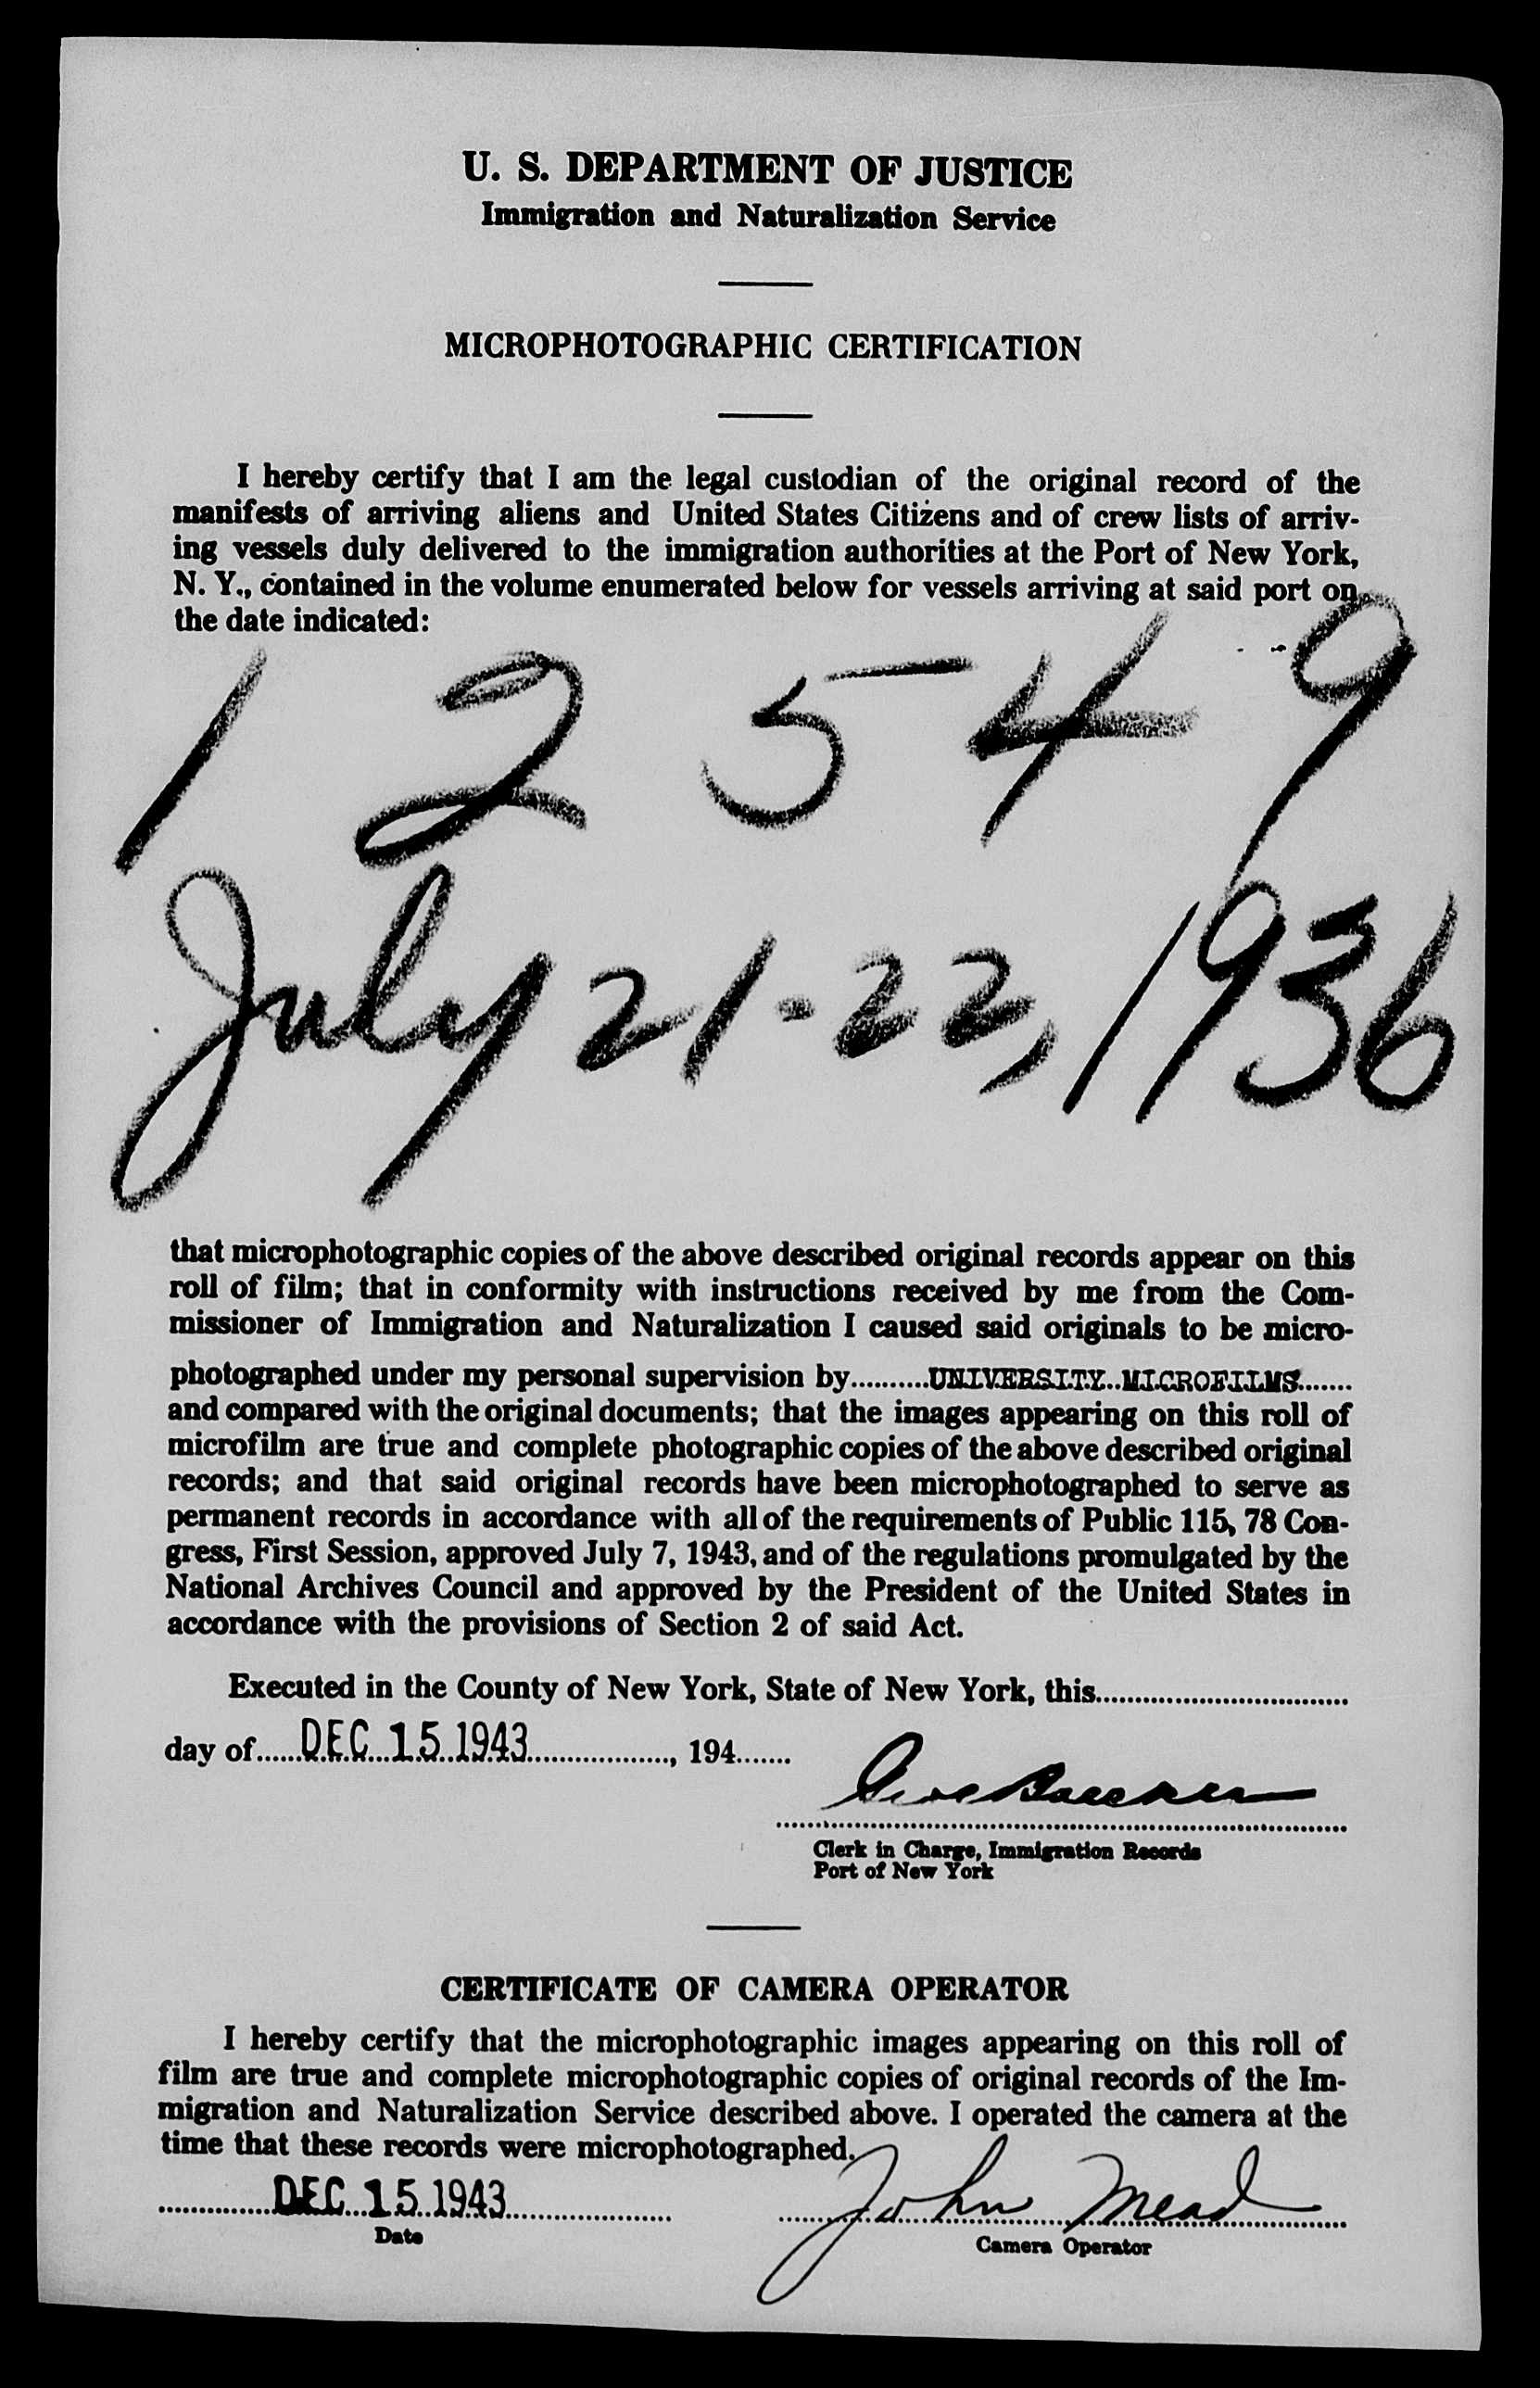 U. S. DEPARTMENT OF JUSTICE
Immigration and Naturalization Service
MICROPHOTOGRAPHIC CERTIFICATION
I hereby certify that I am the legal custodian of the original record of the
manifests of arriving aliens and United States Citizens and of crew lists of arriv-
ing vessels duly delivered to the immigration authorities at the Port of New York,
N. Y., contained in the volume enumerated below for vessels arriving at said port on
the date indicated:
1 2 5 4 9
July 21-22, 1936
that microphotographic copies of the above described original records appear on this
roll of film; that in conformity with instructions received by me from the Com-
missioner of Immigration and Naturalization I caused said originals to be micro-
photographed under my personal supervision by..........UNIVERSITY MICROFILMS.......
and compared with the original documents; that the images appearing on this roll of
microfilm are true and complete photographic copies of the above described original
records; and that said original records have been microphotographed to serve as
permanent records in accordance with all of the requirements of Public 115, 78 Con-
gress, First Session, approved July 7, 1943, and of the regulations promulgated by the
National Archives Council and approved by the President of the United States in
accordance with the provisions of Section 2 of said Act.
Executed in the County of New York, State of New York, this................................
day of......DEC 15 1943..................., 194.......
Clerk in Charge, Immigration Records
Port of New York
CERTIFICATE OF CAMERA OPERATOR
I hereby certify that the microphotographic images appearing on this roll of
film are true and complete microphotographic copies of original records of the Im-
migration and Naturalization Service described above. I operated the camera at the
time that these records were microphotographed.
DEC 15 1943 John Mead
Date
Camera Operator